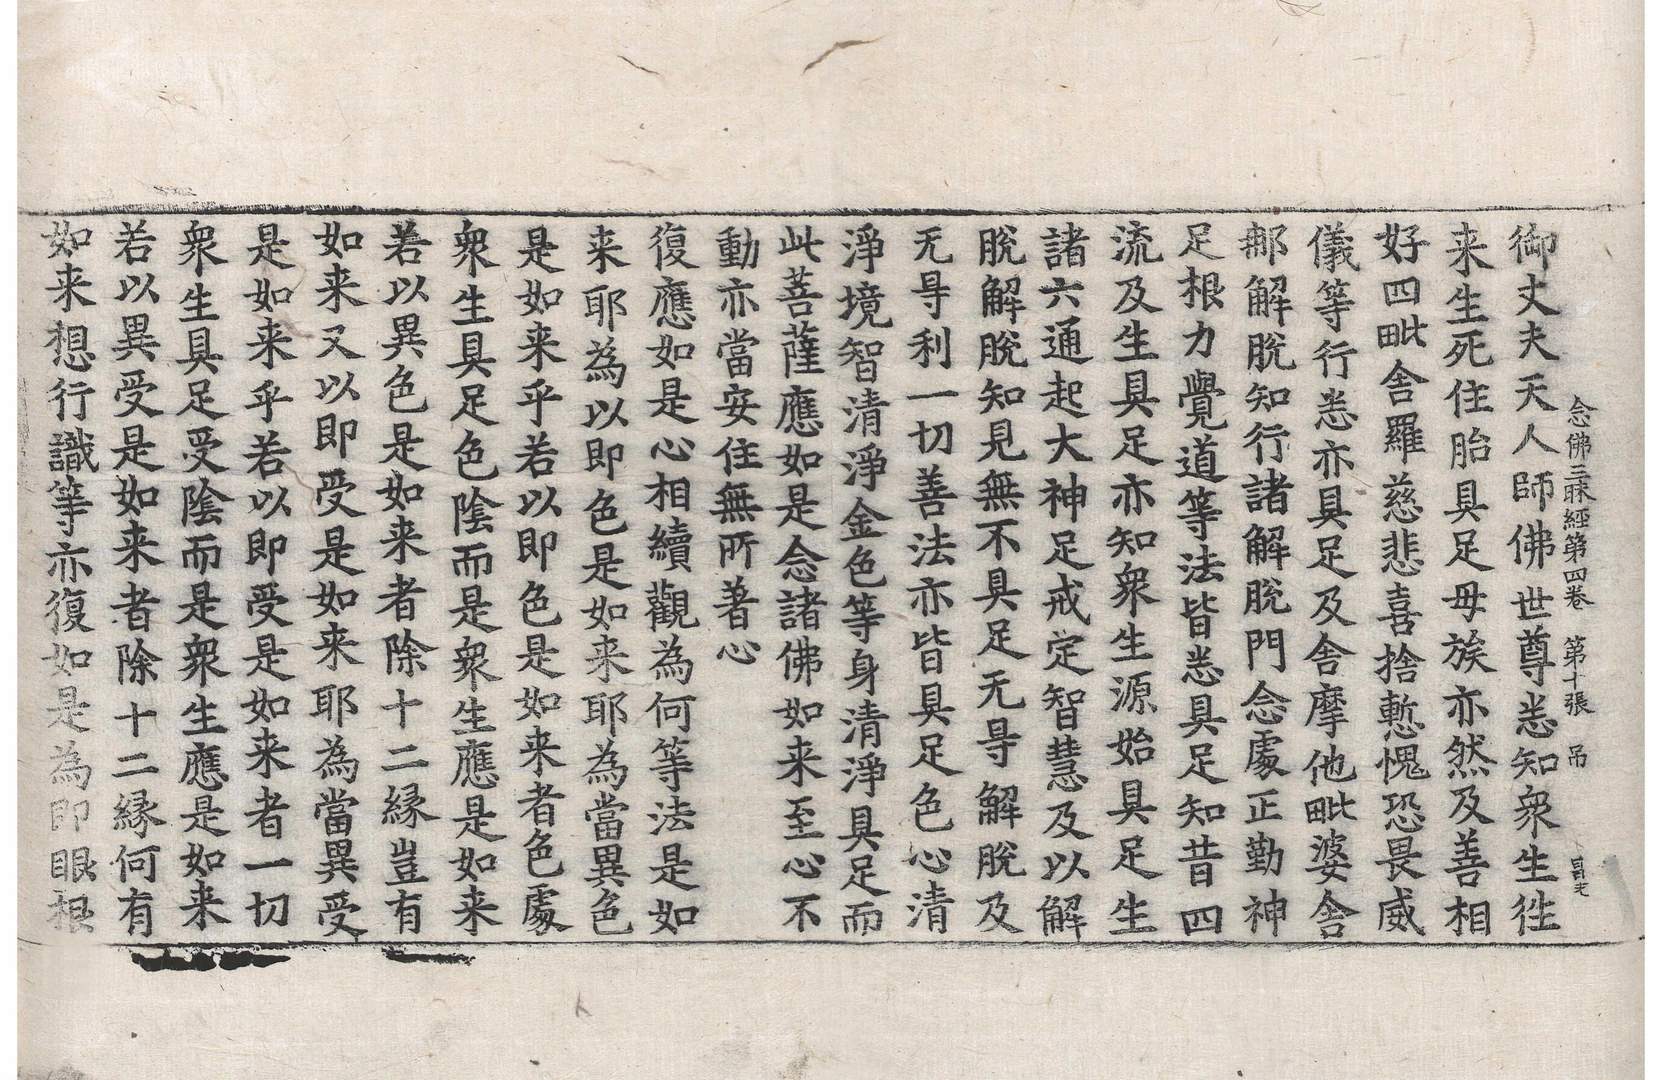 念佛三昧經第四卷　第十張　吊
御丈夫天人師佛世尊悉知衆生徃
来生死住胎具足毋族亦然及善相
好四毗舍羅慈悲喜捨慙愧恐畏威
儀等行悉亦具足及舍摩他毗婆舍
那解脫知行諸解脫門念處正勤神
足根力覺道等法皆悉具足知昔四
流及生具足亦知衆生源始具足生
諸六通起大神足戒定智慧及以解
脫解脫知見無不具足无㝵解脫及
无㝵利一切善法亦皆具足色心清
淨境智清淨金色等身清淨具足而
此菩薩應如是念諸佛如来至心不
動亦當安住無所著心
復應如是心相續觀為何等法是如
来耶為以即色是如来耶為當異色
是如来乎若以即色是如来者色處
衆生具足色陰而是衆生應是如来
若以異色是如来者除十二緣豈有
如来又以即受是如来耶為當異受
是如来乎若以即受是如来者一切
衆生具足受陰而是衆生應是如来
若以異受是如来者除十二緣何有
如来想行識等亦復如是為即眼根